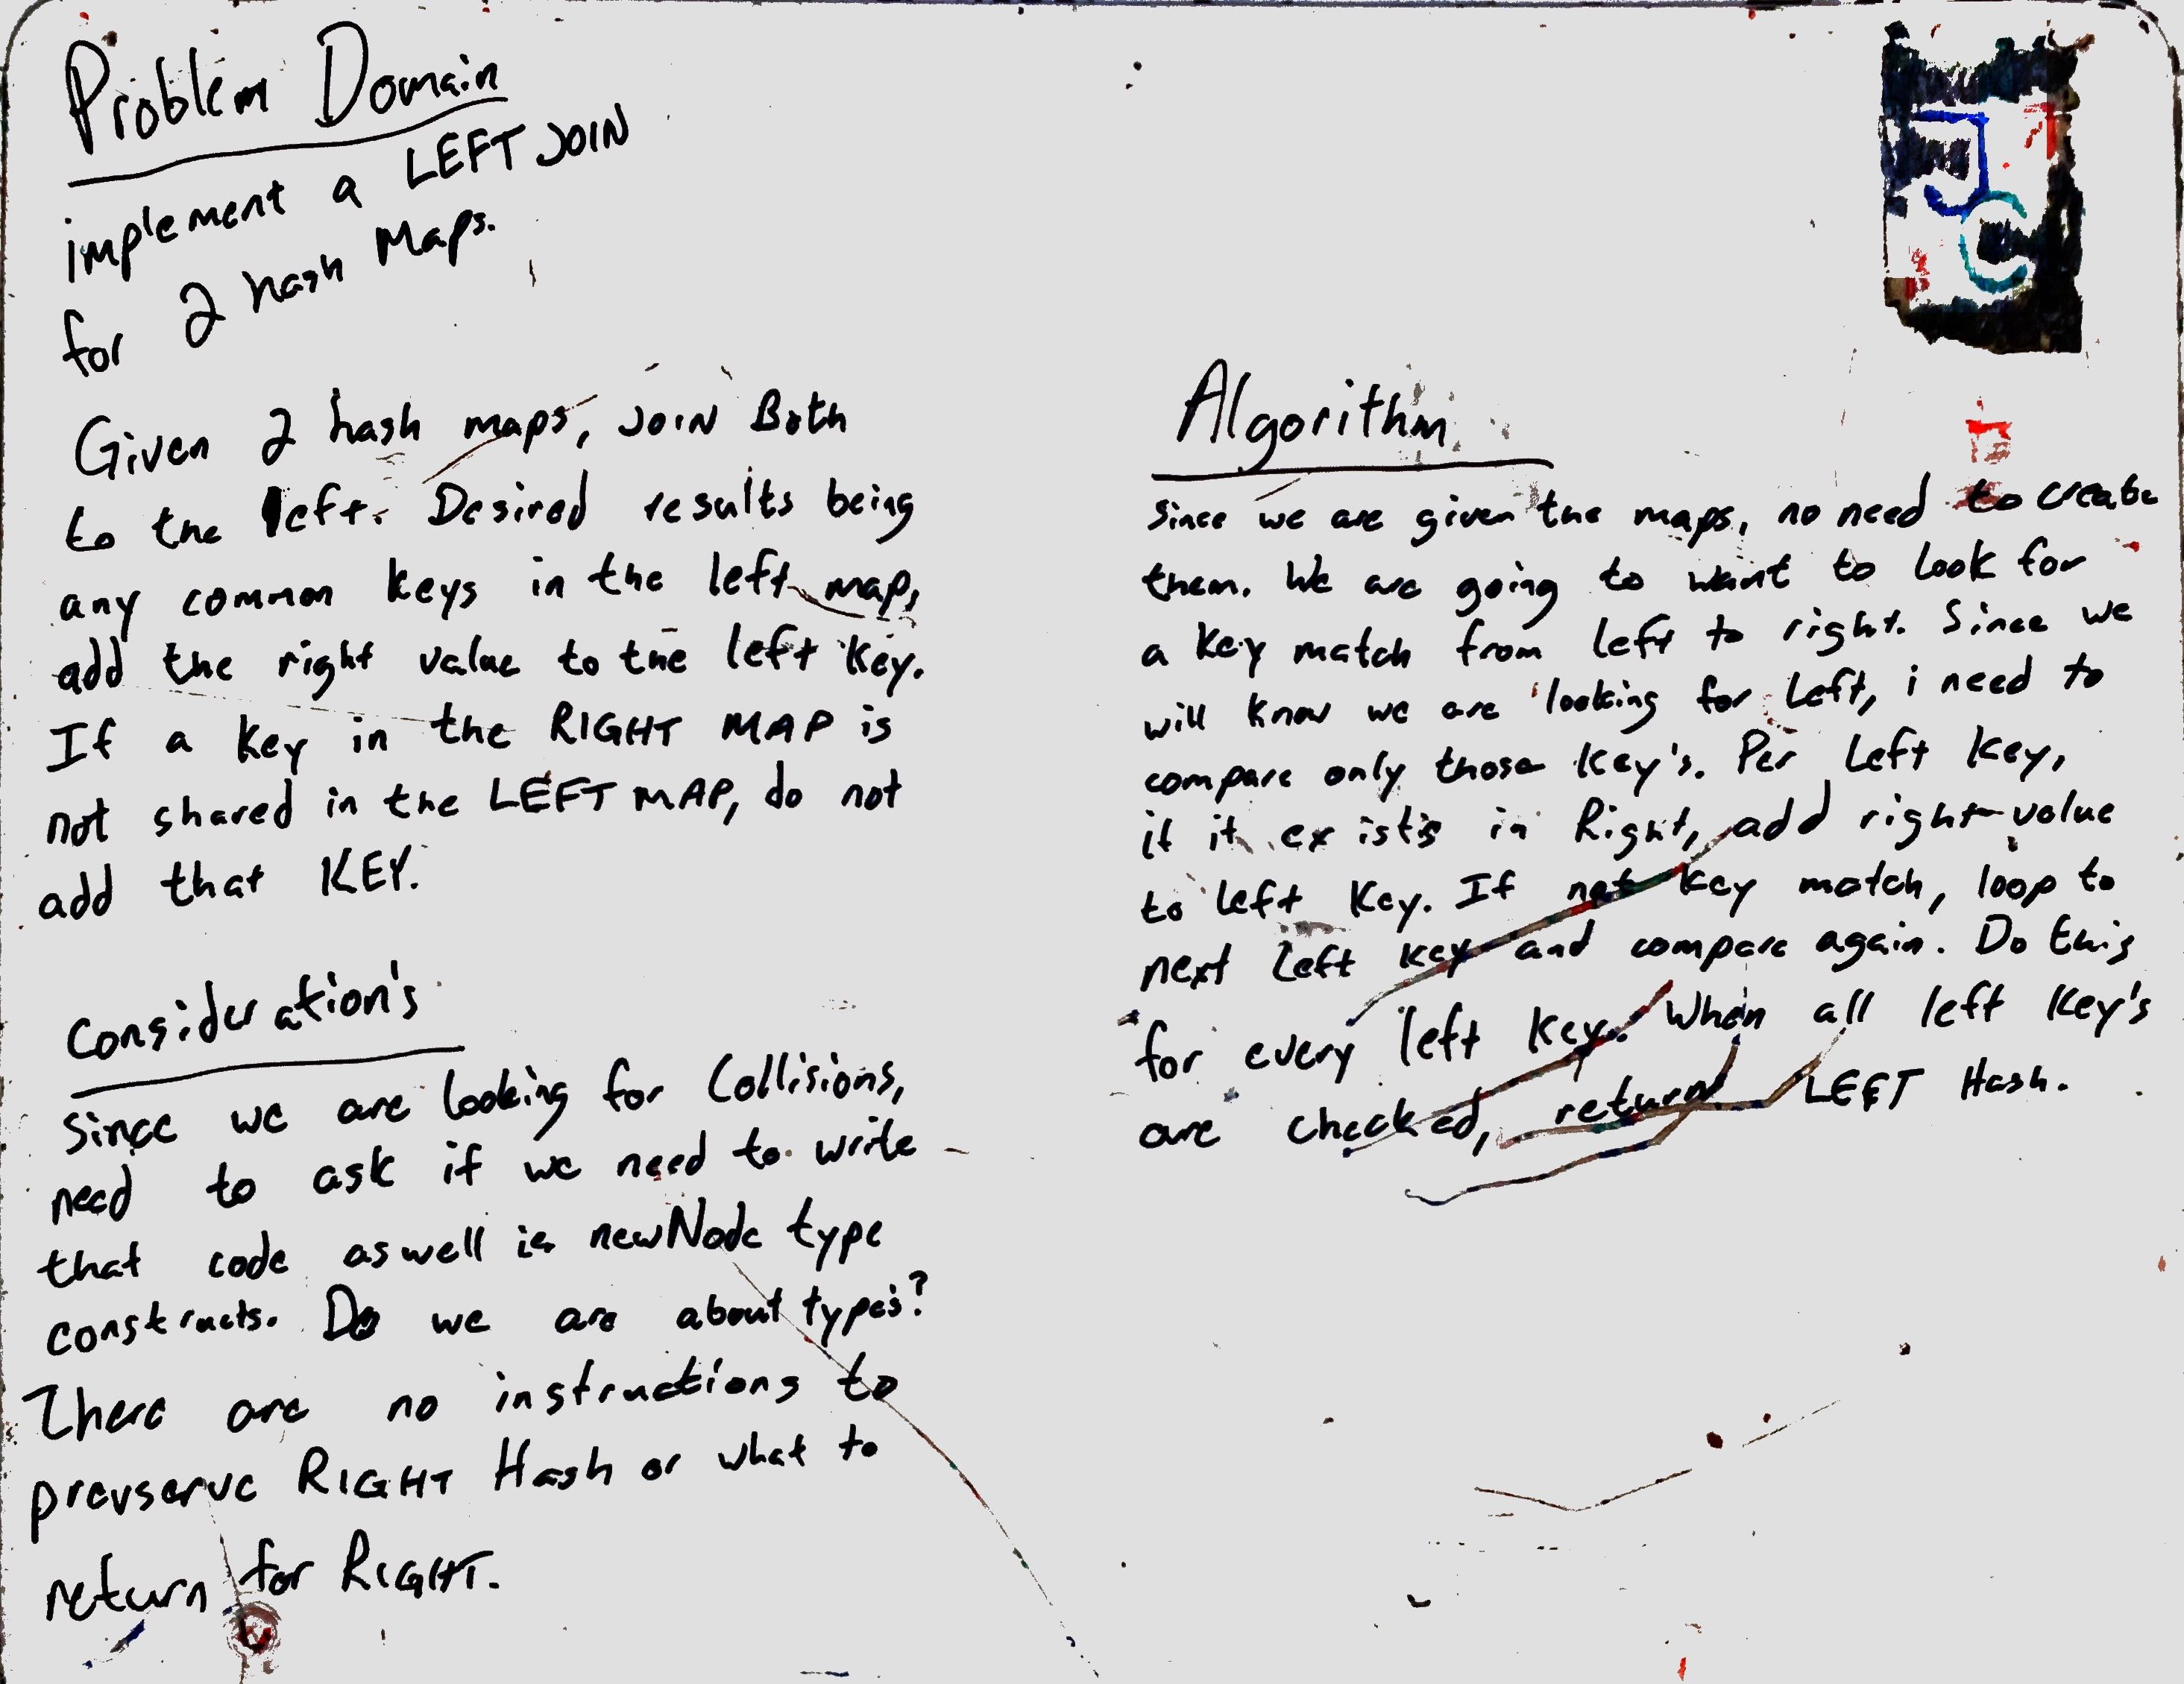 Problem Domain
implement a LEFT JOIN
for 2 hash Maps.
Given 2 hash maps, JOIN Both
to the left. Desired results being
any common keys in the left map,
add the right value to the left key.
If a key in the RIGHT MAP is
not shared in the LEFT MAP, do not
add that KEY.
Consideration's
since we are looking for Collisions,
need to ask if we need to write
that code aswell ie newNode type
constructs. Do we are about types?
There are no instructions to
prevserve RIGHT Hash or what to
return for RIGHT.
Algorithm
Since we are given the maps, no need to create
them. We are going to want to look for
a key match from left to right. Since we
will know we are looking for Left, i need to
compare only those key's. Per Left key,
if it exists in Right, add right value
to left key. If not key match, loop to
next left key and compare again. Do this
for every left key. When all left key's
are checked, return LEFT Hash.